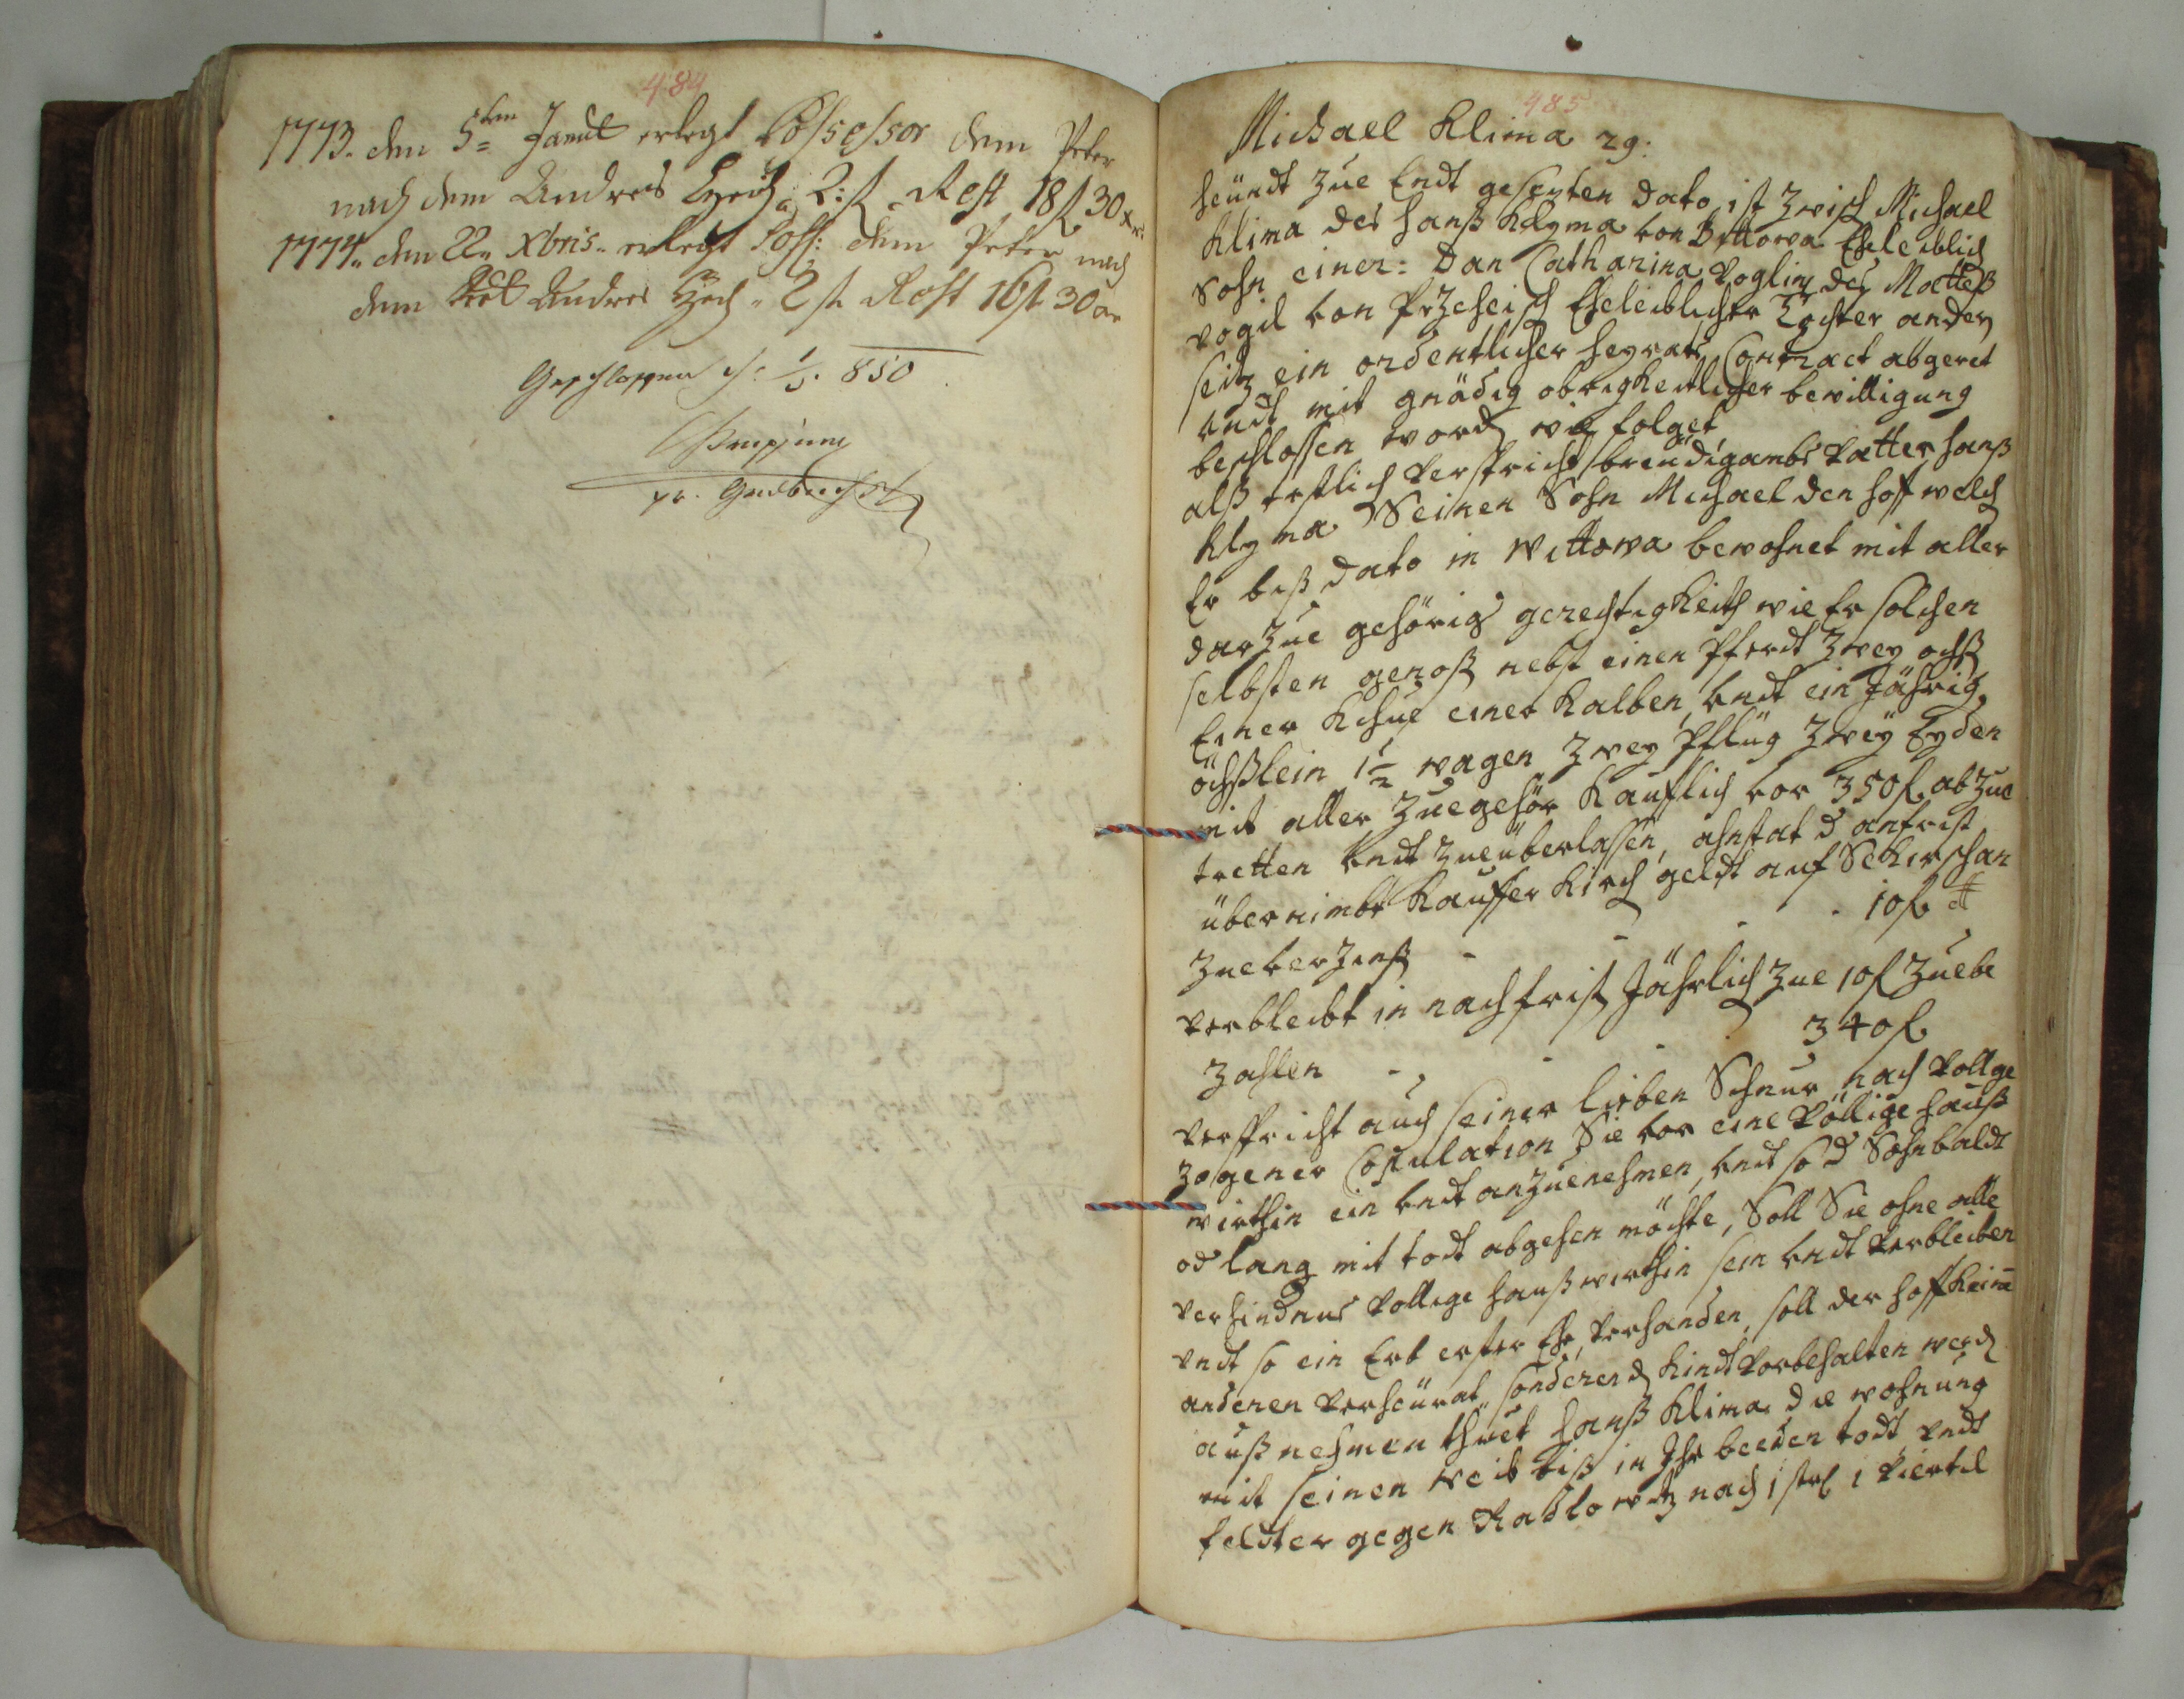 484
1773. den 5ten Januar erlegt Possessor dem Peter
nach dem Andres 2: f Rest 18 f 30 xr:
1774. den 22n Xbris erlegt Poss: dem Peter nach
dem Andres 2 f Rest 16 f 30 xr
Geschlossen 850
pr. Grundbuchsf
485
Michael Klima 29:
Heündt zue Endt gesezten dato ist zwisch Michael
Klima des Hanß Klyma von Bittowa Eheleiblich
Sohn einer: Dan Catharina Voglin des Matteß
Vogil von Przeheisch Eheleiblichter Tochter anders
seitz ein ordentlicher Heyrats Contract abgeret
vndt mit gnädig obrigkeitlicher bewilligung
beschlossen word wie folget
alß erstlich verspricht breüdigambs Vatter Hanß
Klyma Seinen Sohn Michael den hoff welch
Er biß dato in Wittowa bewohnet mit aller
darzue gehörig gerechtigkeith wie Er solchen
selbsten genoß nebst einen Pferdt zwey ochß
Einer Khue einer Kalben, vndt ein Jährig
öchßlein 1½ wagen zwey Pflüg zwey Eyden
mit aller zuegehör Kauflich vor 350 f. abzue
tretten vndt zueüberlassen, ahnstat d anfrist
übernimbt Kauffer Kirch geldt auf Sekerschan
zueverzinß - - - 10 f
verbleibt in nachfrist Jährlich zue 10 f zuebe
zahlen - - - 340 f.
verspricht auch seiner lieben Schnur nach vollge
zogener Copulation Sie vor eine völlige hauß
wirthin ein vndt anzuenehmen, vndt so d Sohn baldt
od lang mit todt abgehen möchte, Soll Sie ohne alle
verhindnus vollige haußwirthin sein vndt verbleiben
vndt so ein Erb erster Ehe verhanden, soll der hoff kein
anderen verheürat, sonderen d Kindt vorbehalten werd
außnehmen thuet Hanß Klima die wohnung
mit seinen Weib biß in Ihr beeden todt vndt
feldter gegen Radlowitz nach 1 str 1 Viertel